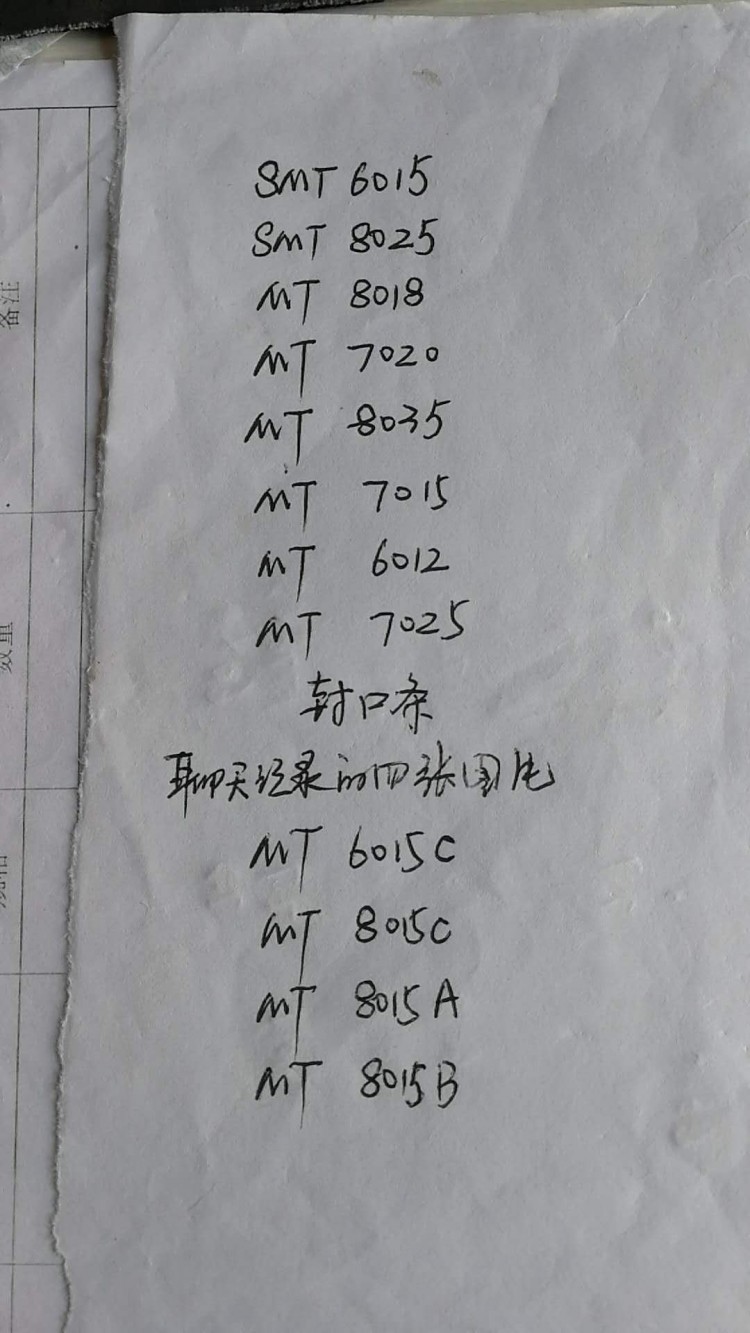 SMT 6015
SMT 8025
MT 8018
MT 7020
MT 8035
MT 7015
MT 6012
MT 7025
封口条
聊天记录的四张图片
MT 6015C
MT 8015C
MT 8015A
MT 8015B
备注
数量